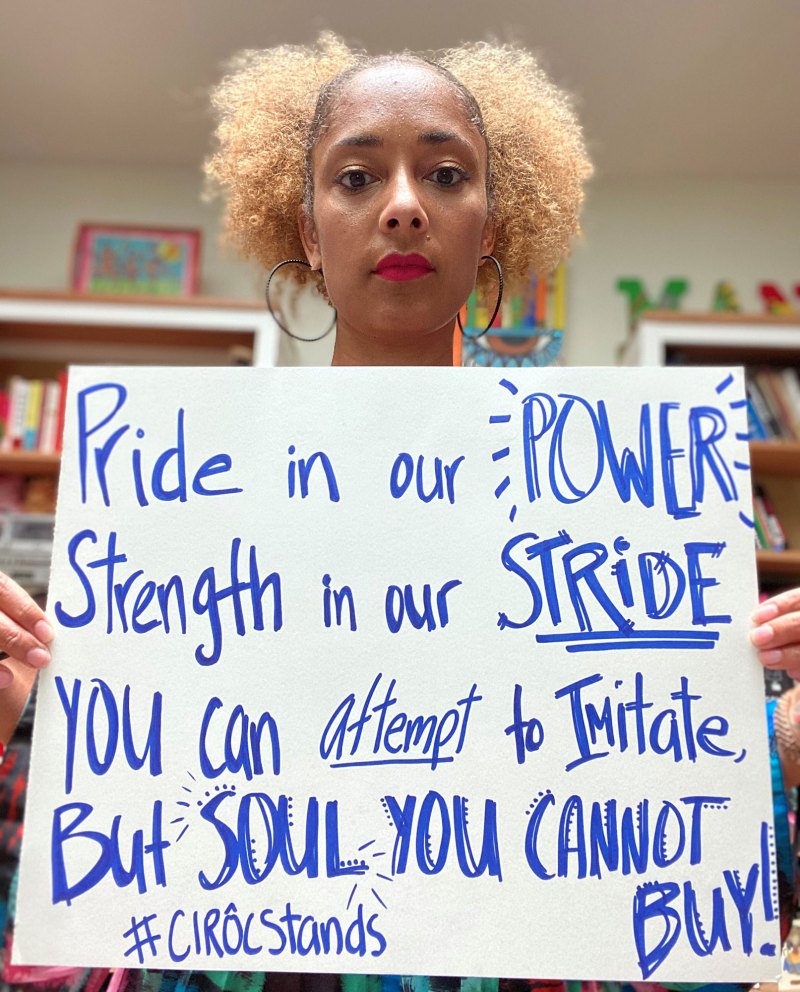 Pride in our POWER
Strength in our STRiDE
YOU can attempt to Imitate,
But SOUL YOU CANNOT
BUY!
#CIRôcStands